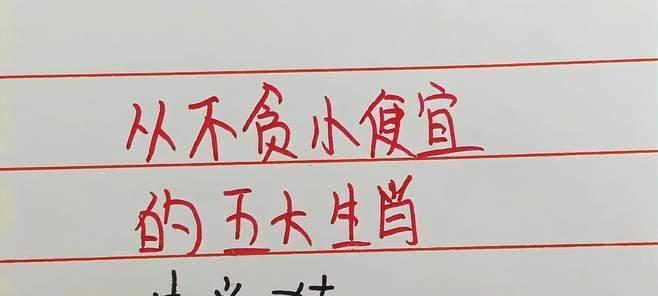 从不贪小便宜
的五大生肖